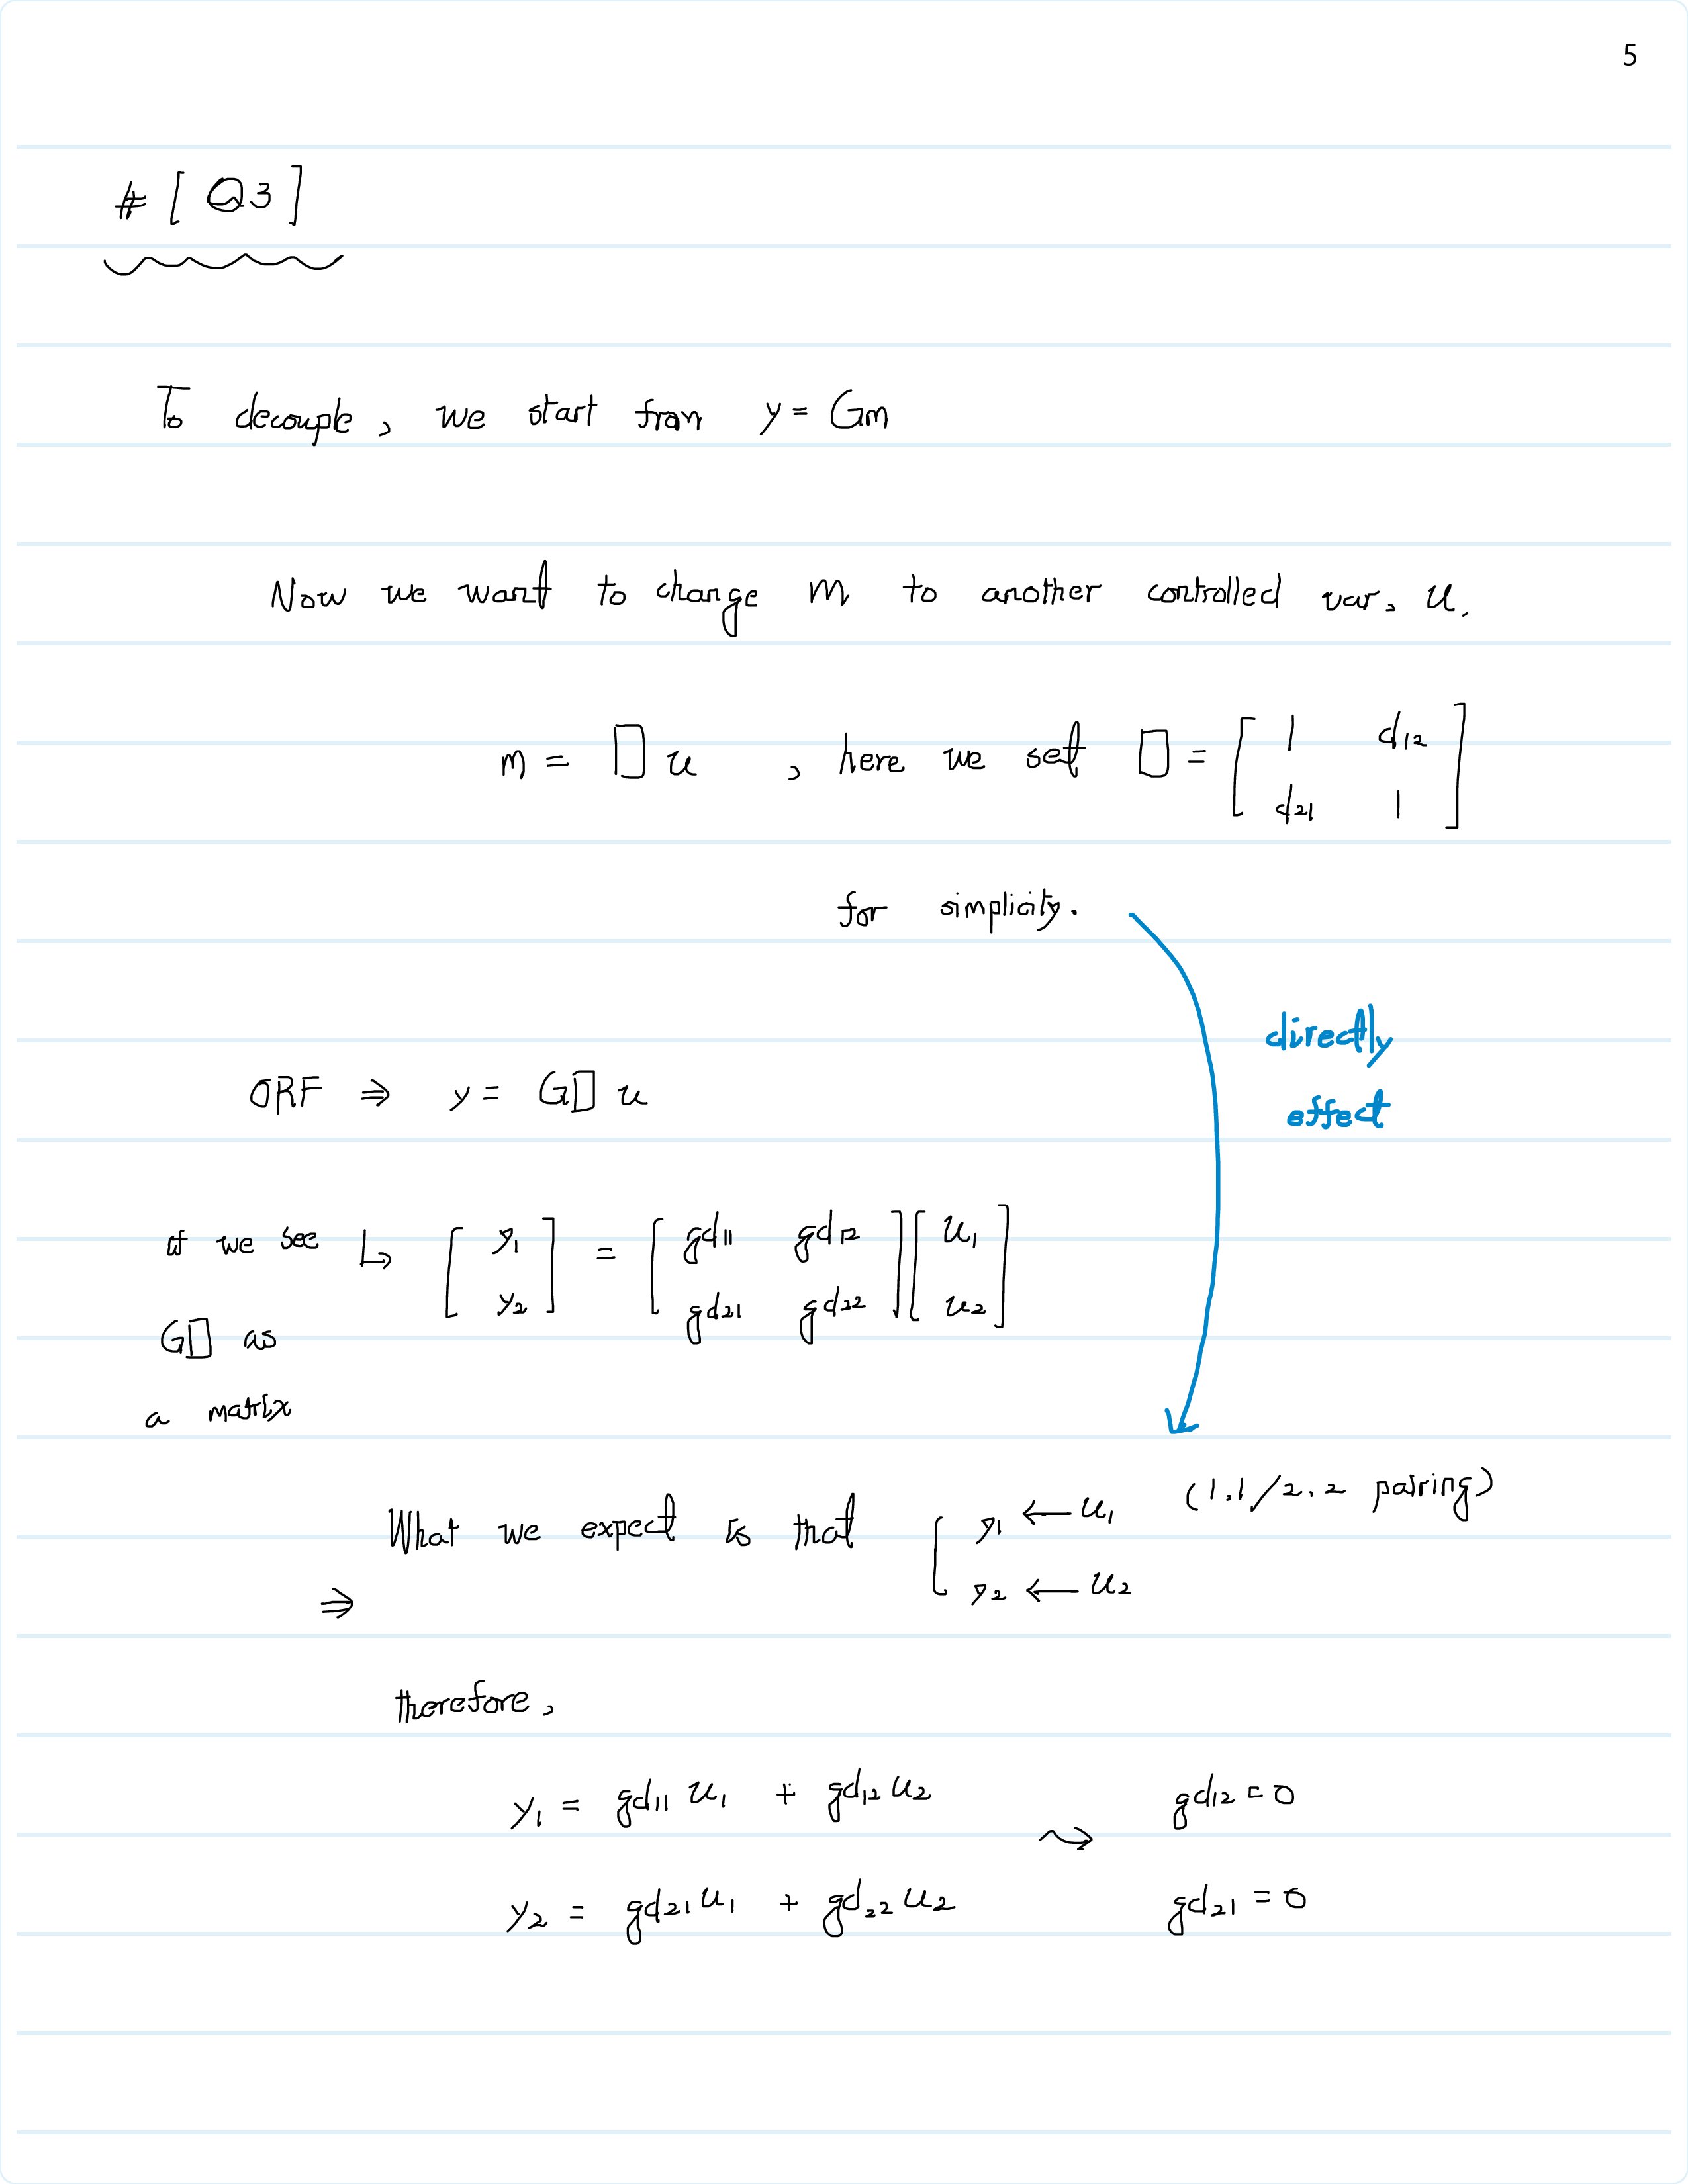 5
# [Q3]
To decouple, we start from y = Gm
Now we want to change m to another controlled var, u.
m = D u , here we set D = [ 1 d12 ; d21 1 ]
for simplicity.
directly
effect
ORF ⇒ y = GD u
if we see ↳ [ y1 ; y2 ] = [ gd11 gd12 ; gd21 gd22 ] [ u1 ; u2 ]
GD as
a matrix
⇒ What we expect is that { y1 ← u1 (1,1/2,2 pairing)
y2 ← u2
therefore,
y1 = gd11 u1 + gd12 u2 ⇝ gd12 = 0
y2 = gd21 u1 + gd22 u2 gd21 = 0